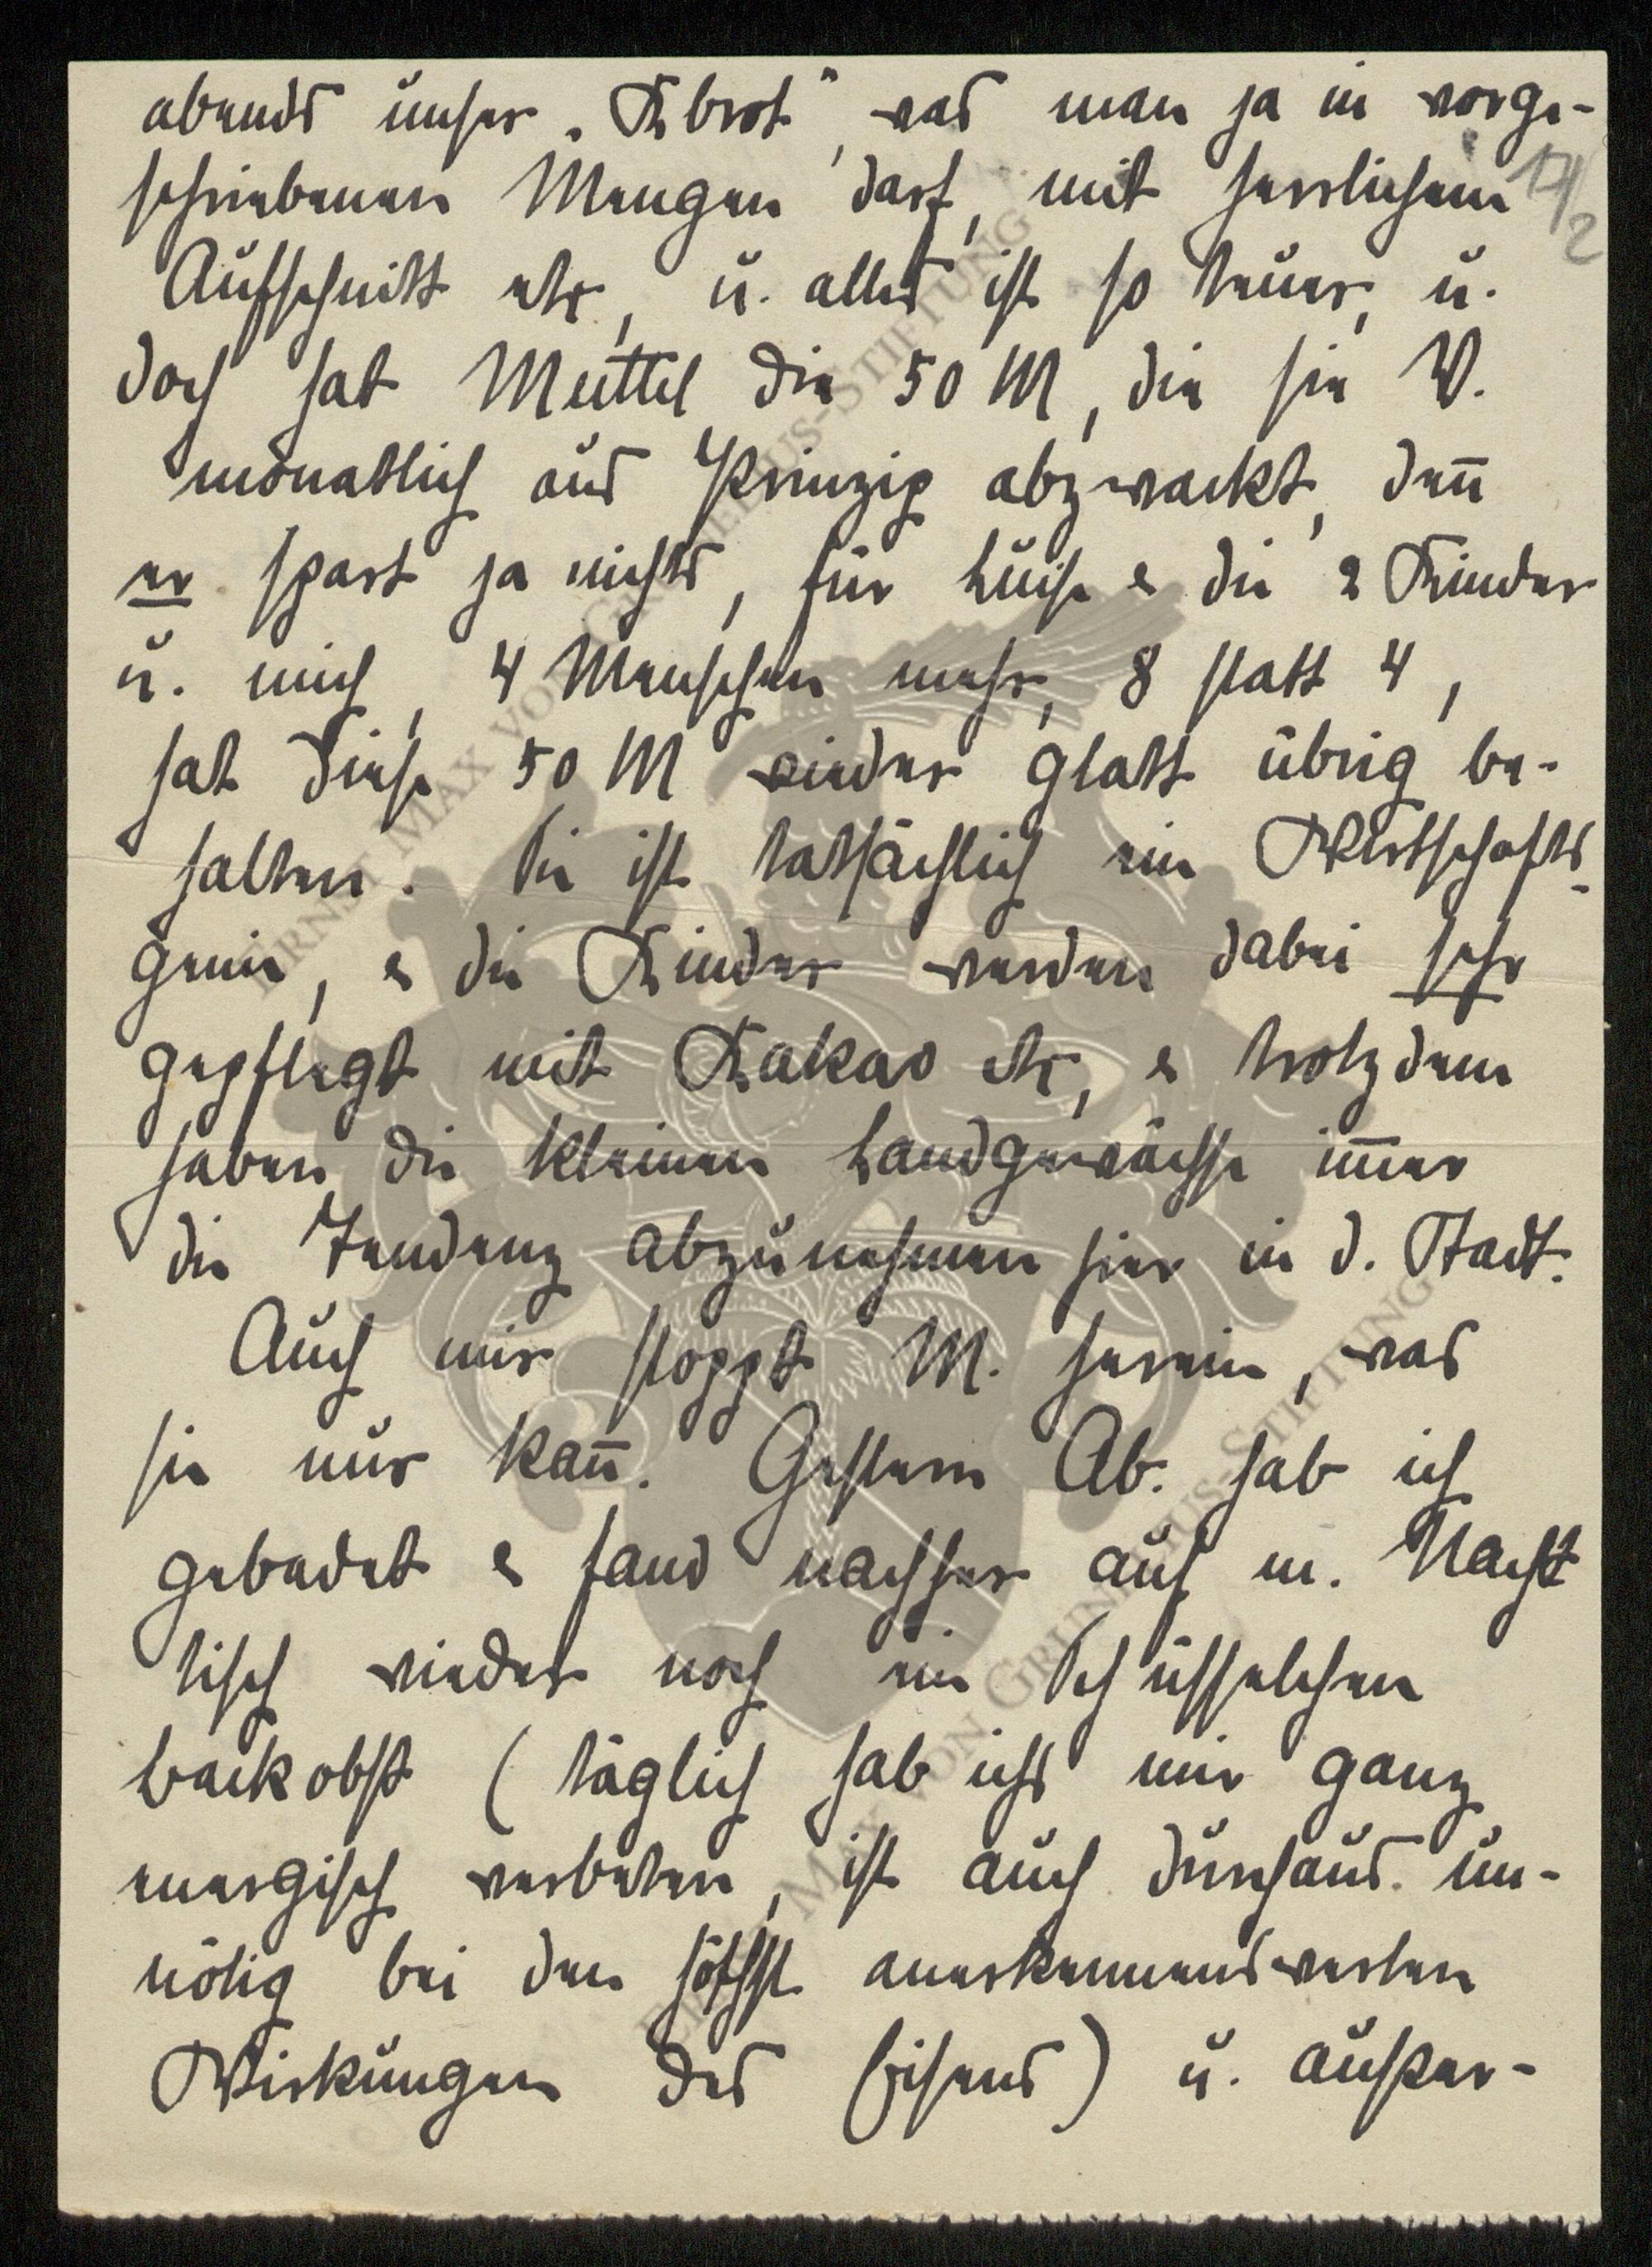 abends unser „Kbrot", was man ja in vorge-
schriebenen Mengen darf, mit herrlichem
17/2
Aufschnitt etc, u. alles ist so teuer, u.
doch hat Muttel die 50 M, die sie V.
monatlich aus Prinzip abzwackt, deñ
er spart ja nichts, für Luise & die 2 Kinder
u. mich, 4 Menschen mehr, 8 statt 4,
hat diese 50 M wieder glatt übrig be-
halten. Sie ist tatsächlich ein Wirtschafts-
genie, & die Kinder werden dabei sehr
gepflegt mit Kakao etc, & trotzdem
haben die kleinen Landgewächse im̄er
die Tendenz abzunehmen hier in d. Stadt.
Auch mir stoppt M. herein, was
sie nur kañ. Gestern Ab. hab ich
gebadet & fand nachher auf m. Nacht
tisch wieder noch ein Schüsselchen
Backobst (täglich hab ichs mir ganz
energisch verbeten, ist auch durchaus un-
nötig bei den höchst anerkennenswerten
Wirkungen des Eisens) u. außer-
ERNST MAX VON GRUNELIUS-STIFTUNG
ERNST MAX VON GRUNELIUS-STIFTUNG